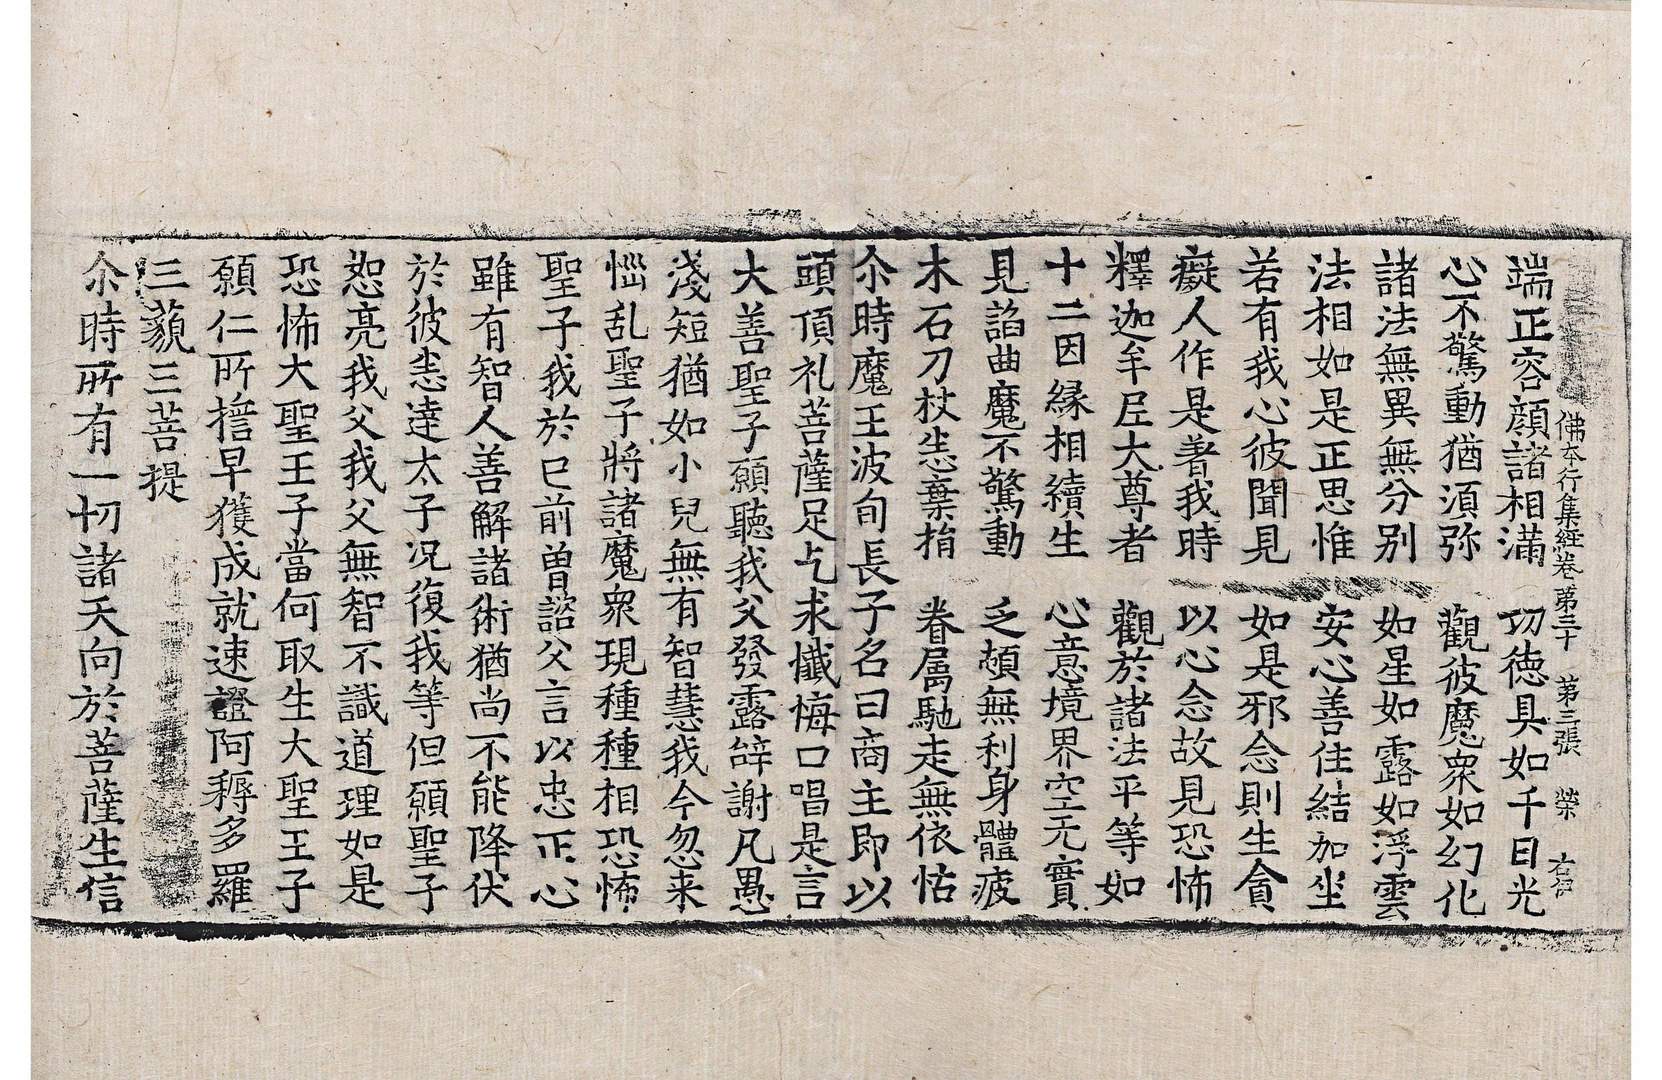 佛本行集經卷第三十 第三張 榮
端正容顔諸相滿 功徳具如千日光
心不驚動猶湏弥 觀彼魔衆如幻化
諸法無異無分别 如星如露如浮雲
法相如是正思惟 安心善住結加坐
若有我心彼聞見 如是邪念則生貪
癡人作是著我時 以心念故見恐怖
釋迦牟尼大尊者 觀於諸法平等如
十二因縁相續生 心意境界空无實
見諂曲魔不驚動 乏頓無利身體疲
木石刀杖悉棄捎 眷屬馳走無依怙
尒時魔王波旬長子名曰商主即以
頭頂礼菩薩足乞求懺悔口唱是言
大善聖子願聽我父發露辝謝凡愚
淺短猶如小兒無有智慧我今忽来
惱乱聖子將諸魔衆現種種相恐怖
聖子我於已前曽諮父言以忠正心
雖有智人善解諸術猶尚不能降伏
於彼悉達太子况復我等但願聖子
恕亮我父我父無智不識道理如是
恐怖大聖王子當何取生大聖王子
願仁所擔早獲成就速證阿耨多羅
三藐三菩提
尒時所有一切諸天向於菩薩生信